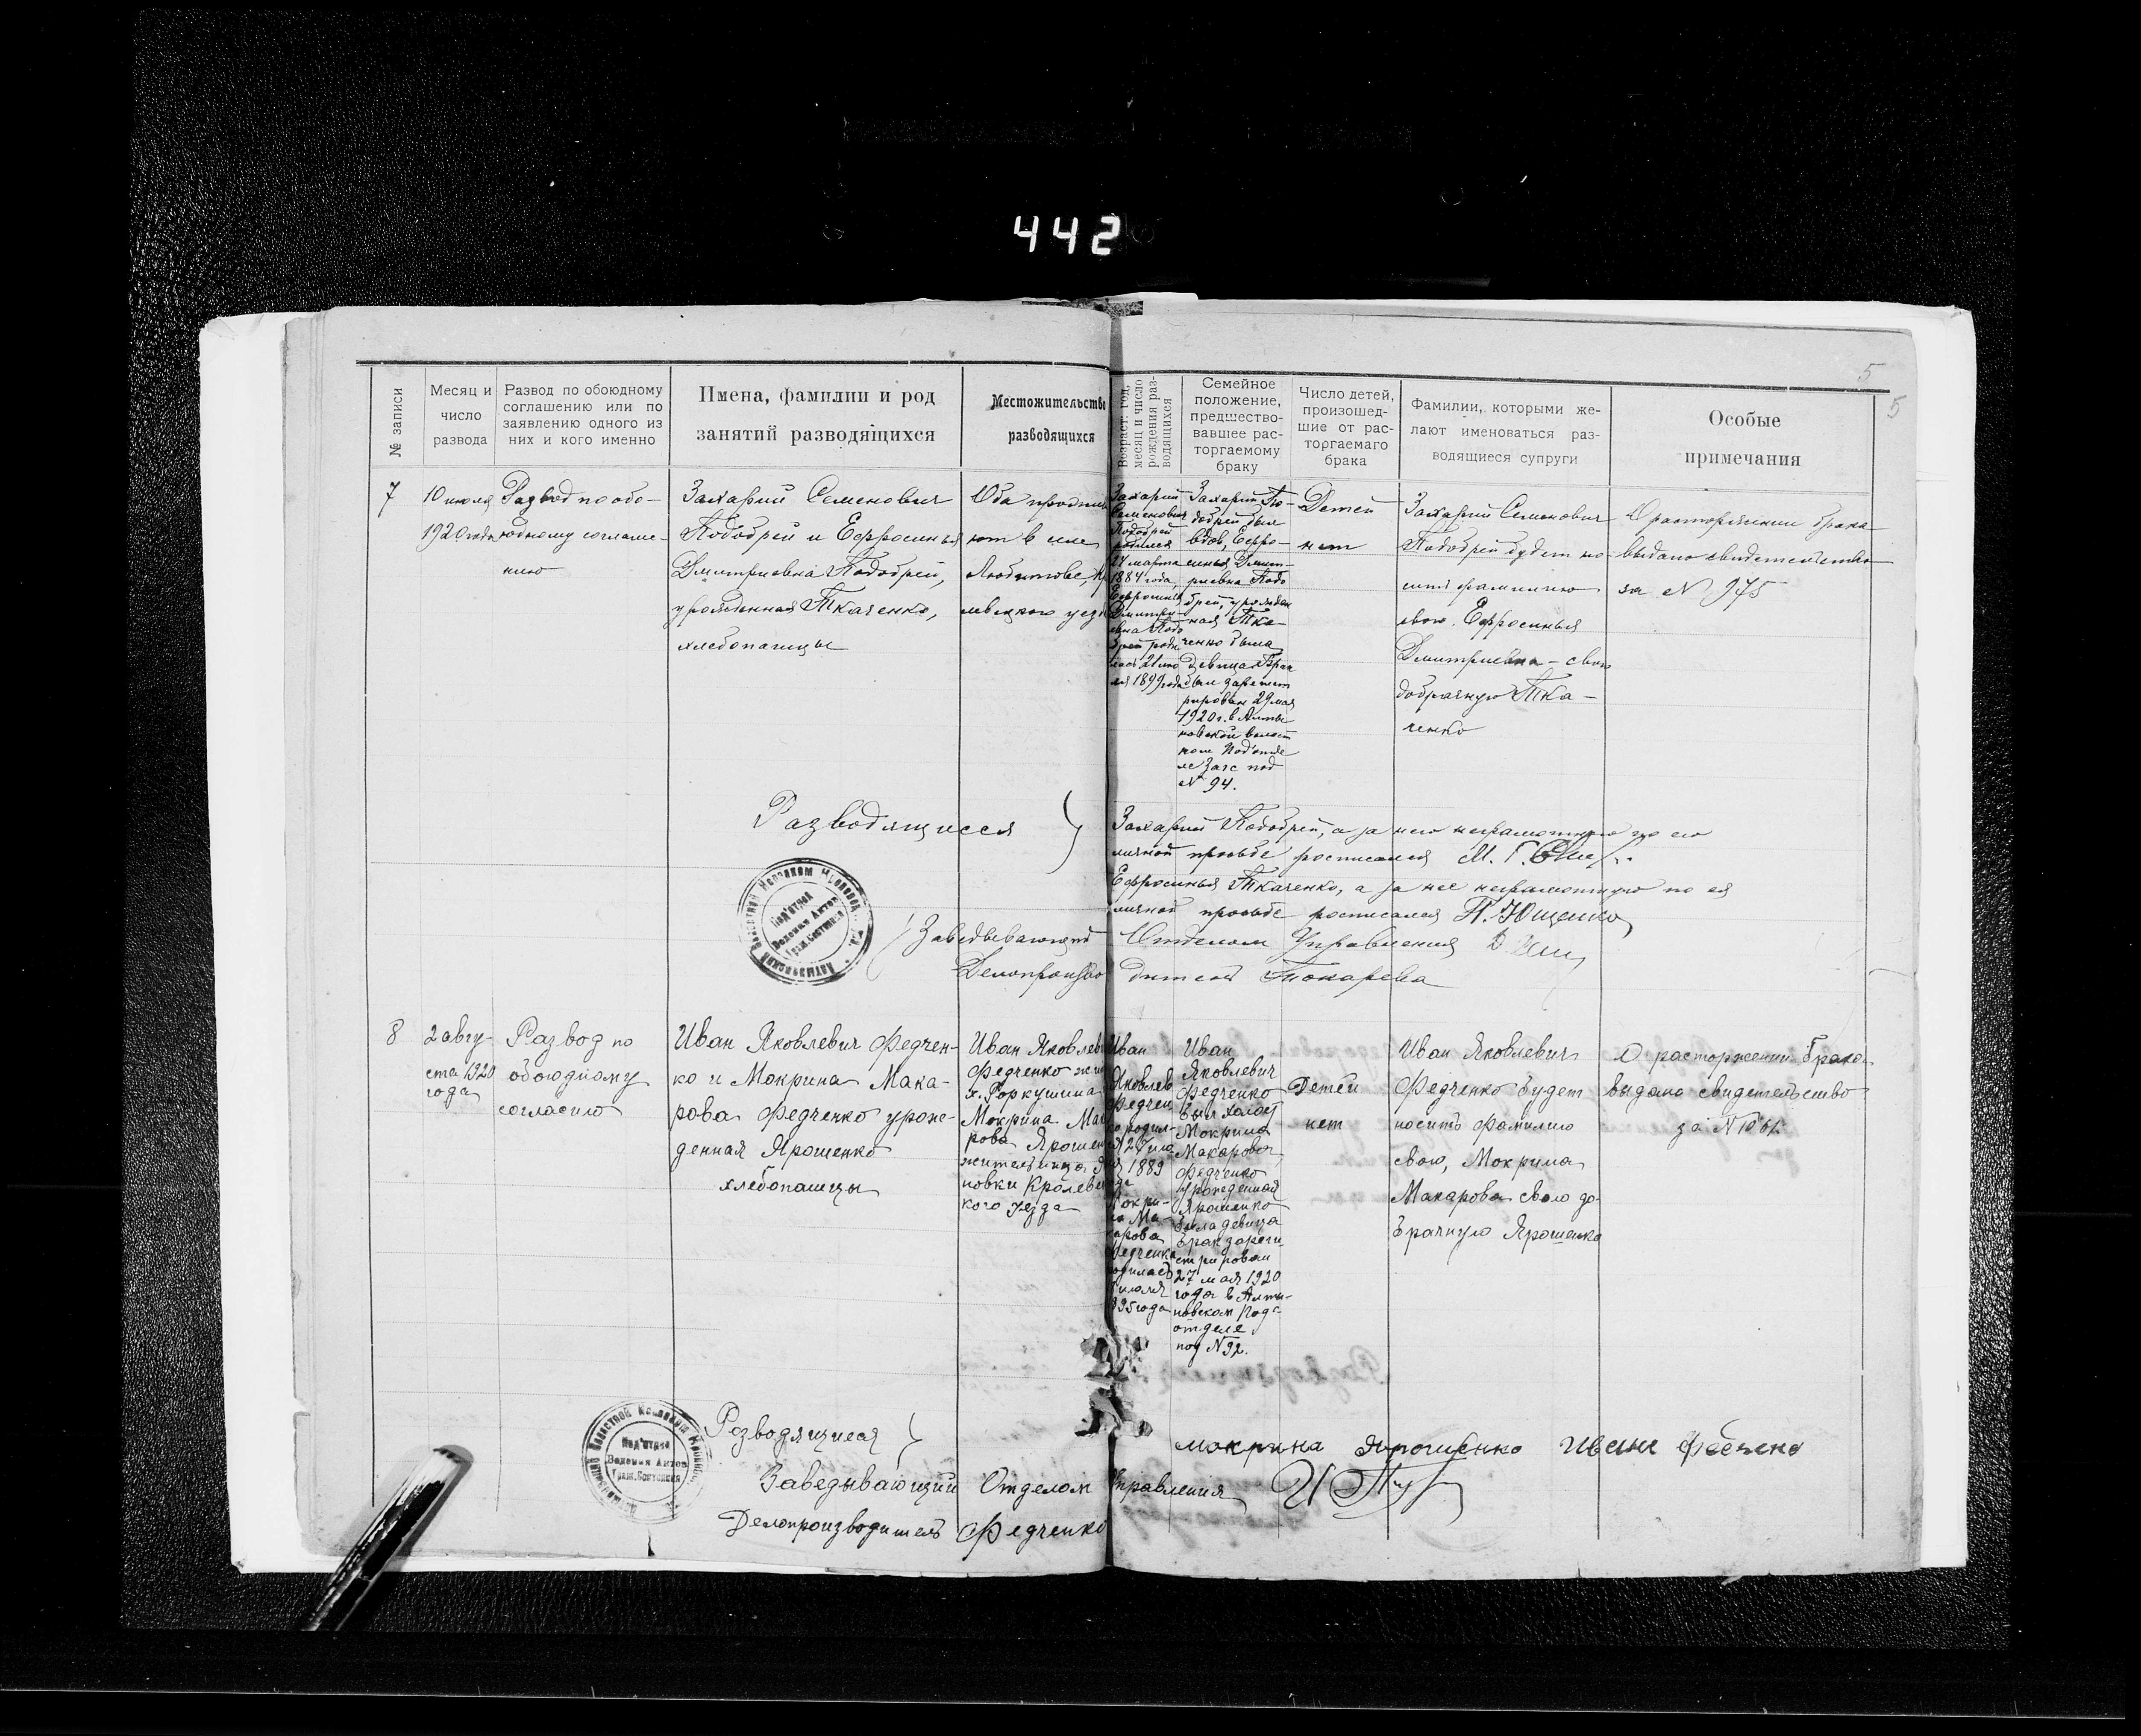 442
5
5
№ записи
Месяц и
число
развода
Развод по обоюдному
соглашению или по
заявлению одного из
них и кого именно
Имена, фамилии и род
занятий разводящихся
Местожительство
разводящихся
Возраст: год,
месяц и число
рождения раз-
водящихся
Семейное
положение,
предшество-
вавшее рас-
торгаемому
браку
Число детей,
произошед-
шие от рас-
торгаемаго
брака
Фамилии, которыми же-
лают именоваться раз-
водящиеся супруги
Особые
примечания
7
10 июля
1920 года
Развод по обо-
юдному соглаше-
нию
Захарий Семенович
Подобрей и Ефросинья
Дмитриевна Подобрей,
урожденная Ткаченко,
хлебопашцы
Оба прожи
ют в селе
Любитове, Кр
левецкого уезд
Захарий
Семенович
Подобрей
родился
24 марта
1884 года,
Ефросинья
Дмитри-
евна Подо
брей роди
лась 21 ию
ля 1899 года
Захарий По-
добрей был
вдов, Ефро-
синья Дмит-
риевна Подо
брей, урожден
ная Тка-
ченко была
девица Брак
был зарегист
рирован 29 мая
1920 г. в Алты
новской волост
ном Под'отде
ле Загс под
№ 94.
Детей
нет
Захарий Семенович
Подобрей будет но-
сить фамилию
свою. Ефросинья
Дмитриевна - свою
добрачную Тка-
ченко
О расторжении брака
выдано свидетельство
за № 975
Разводящиеся
Захарий Подобрей, а за него неграмотного по его
личной просьбе росписался М. Г.
Ефросинья Ткаченко, а за нее неграмотную по ея
личной просьбе росписался П. Ющенко
Заведывающий Отделом Управления
Делопроизводитель Токарева
Под'отдел
Ведения Актов
Гражд. Состояния
8
2 авгу-
ста 1920
года
Развод по
обоюдному
согласию
Иван Яковлевич Федчен-
ко и Мокрина Мака-
рова Федченко урож-
денная Ярошенко
хлебопашцы
Иван Яковлев
Федченко жит
х. Форкушина
Мокрина Мак
рова Ярошен
жительница
новки Кролевец
кого уезда
Иван
Яковлев
Федчен
ко родил-
ся 27 ию
ля 1889
года
Мокри-
на Ма-
карова
Федченко
родилась
июля
895 года
Иван
Яковлевич
Федченко
был холост
Мокрина
Макарова
Федченко
урожденная
Ярошенко
была девица
Брак зареги-
стрирован
27 мая 1920
года в Алты-
новском Под-
отделе
под № 92.
Детей
нет
Иван Яковлевич
Федченко будет
носить фамилию
свою, Мокрина
Макарова свою до-
брачную Ярошенко
О расторжении брака
выдано свидетельство
за №
Разводящиеся
мокрина Ярошенко Иван Федченко
Заведывающий Отделом Управления
Делопроизводитель Федченко
Под'отдел
Ведения Актов
Граж. Состояния